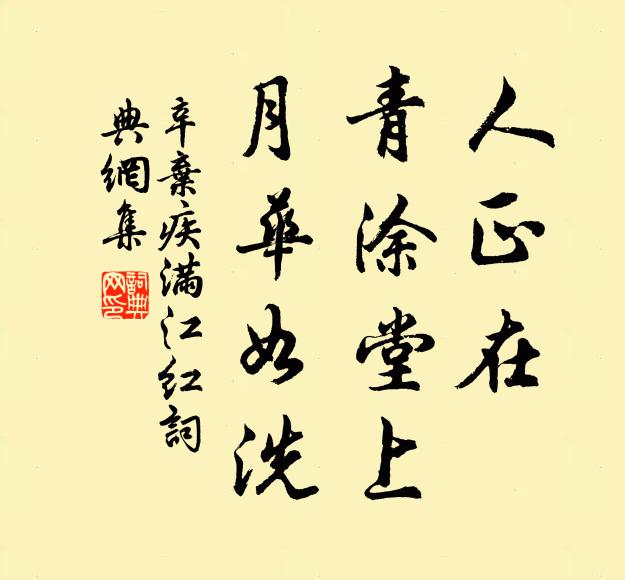 人正在
青涂堂上
月華如洗
辛棄疾滿江紅詞
典網集
詞典網印